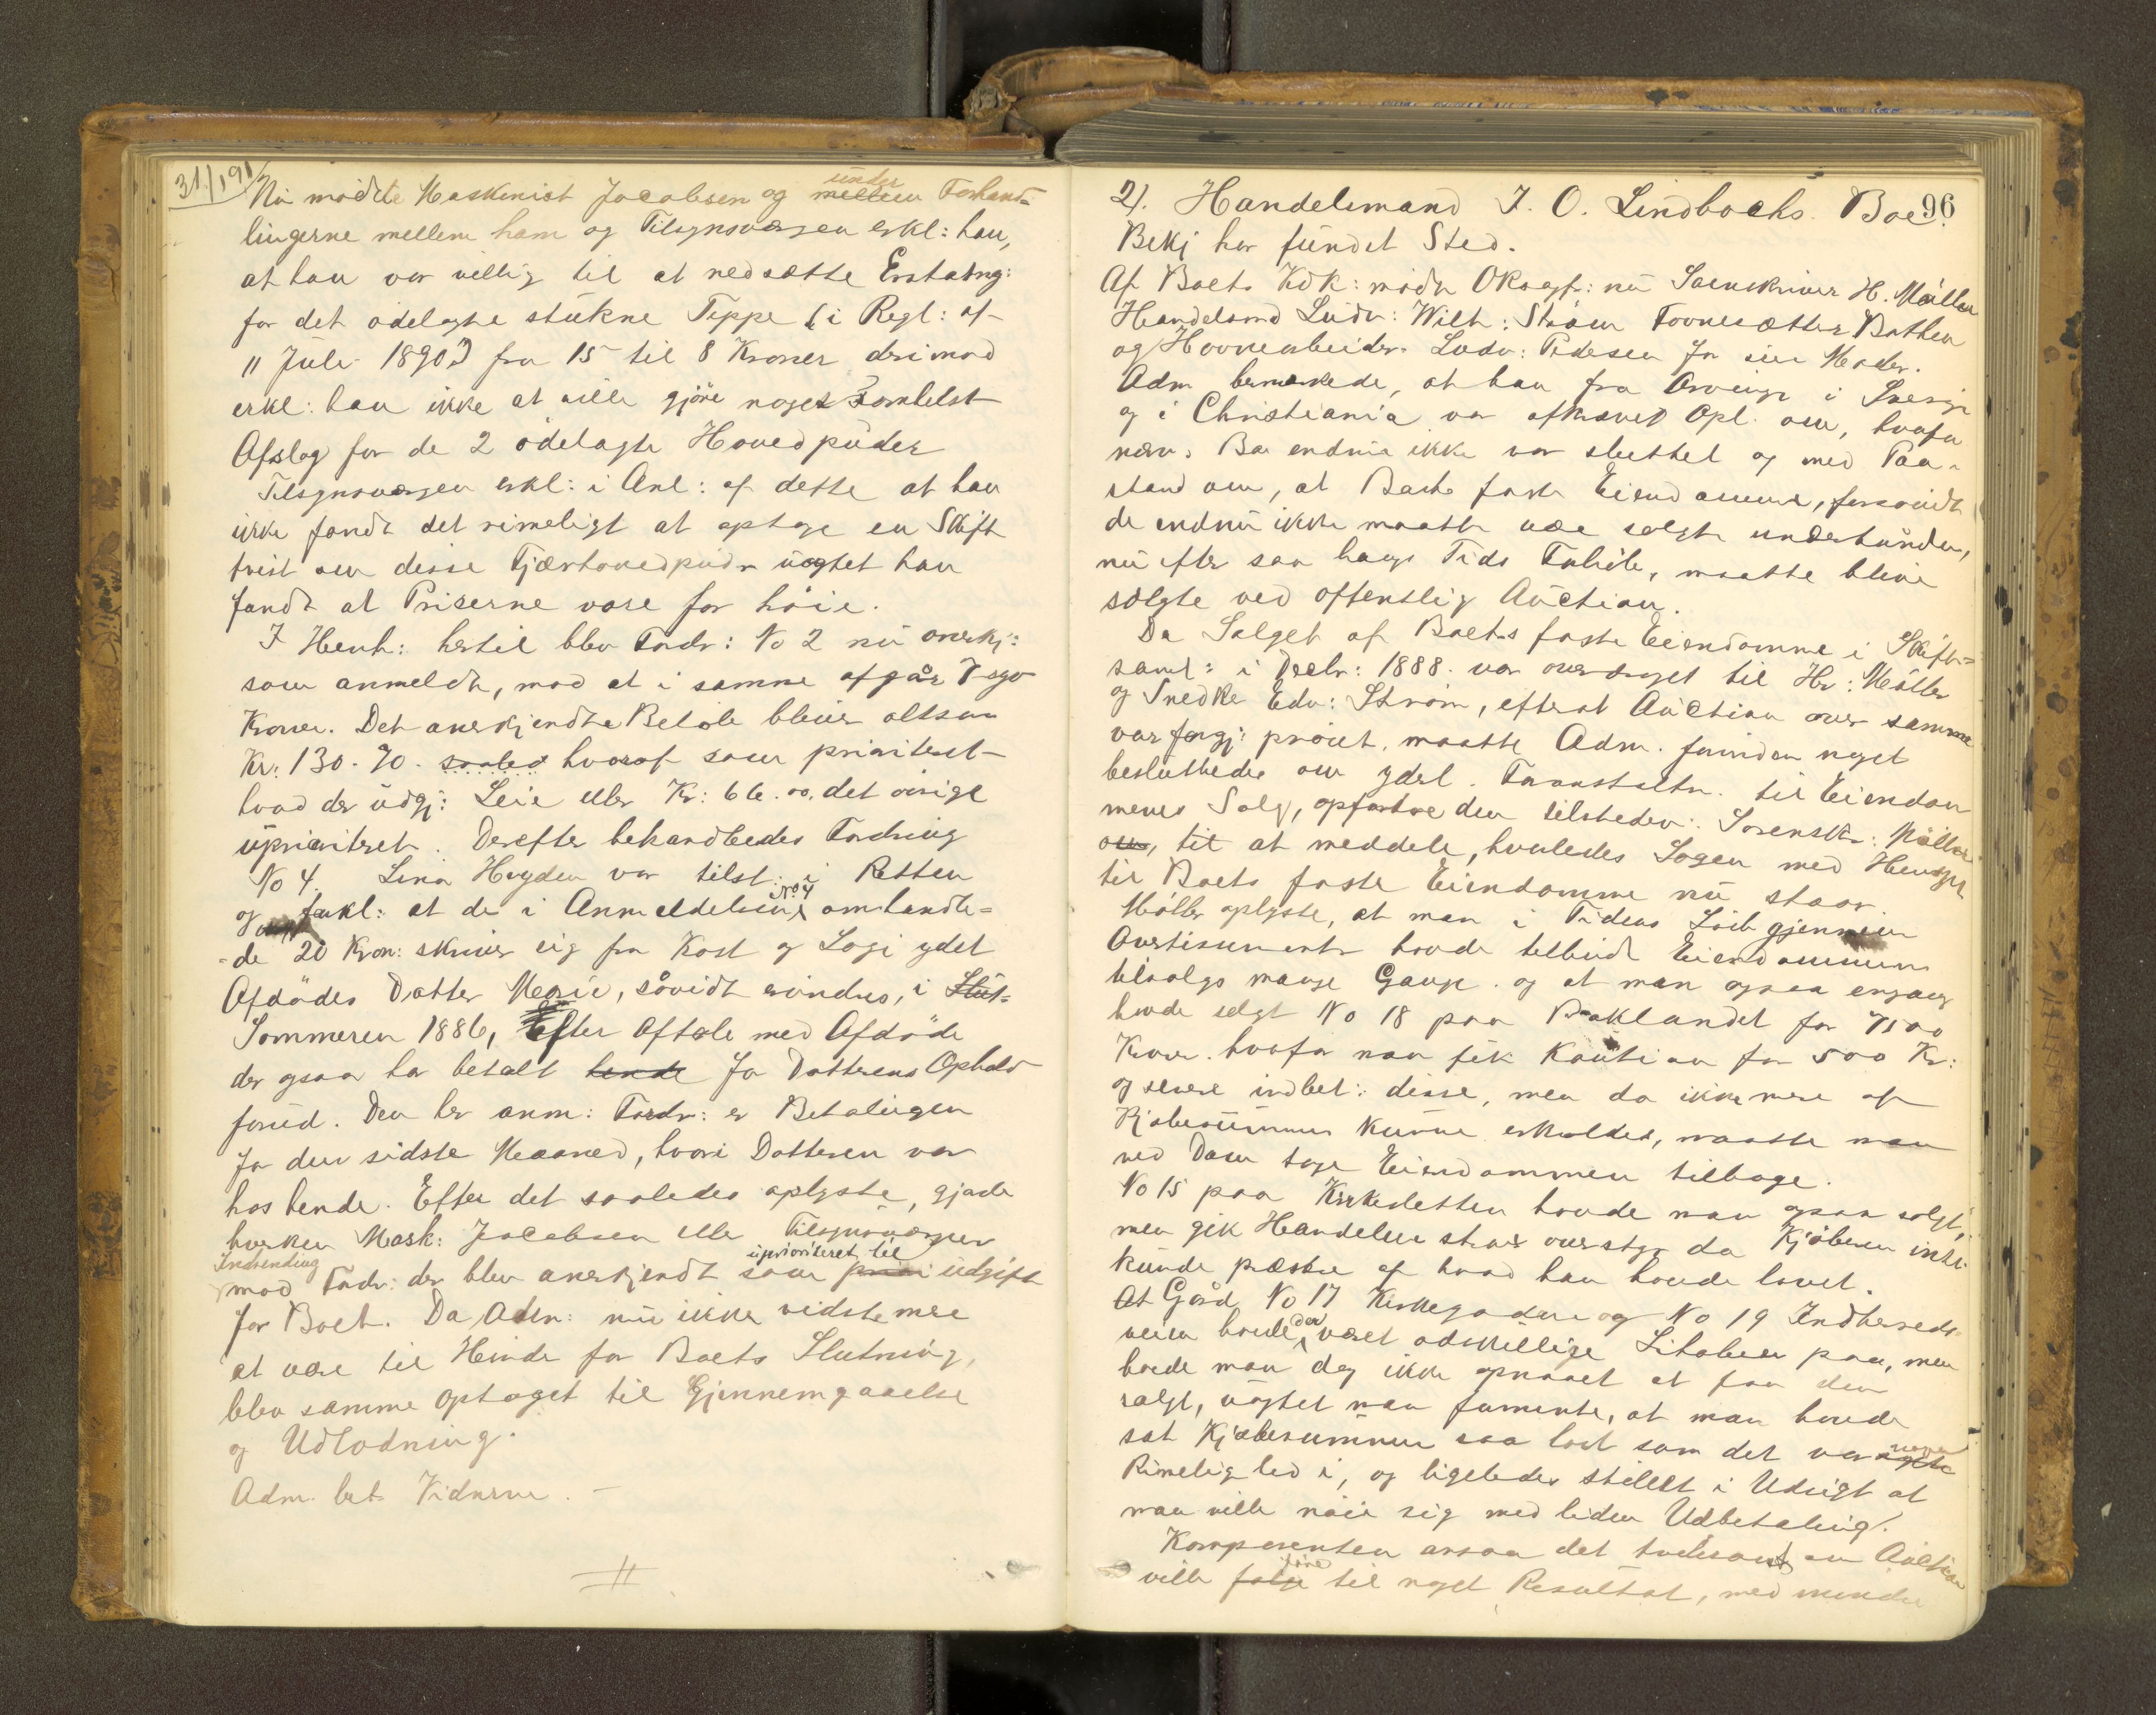 31/1 91
Nu mødte Maskenist Jacobsen og under mellem Forhand-
lingerne mellem ham og Tilsynsværgen erkl: han,
at han var villig til at nedsætte Erstatng:
for det ødelagte stukne Teppe (i Regl: af
11 Juli 1890) fra 15 til 8 Kroner derimod
erkl: han ikke at ville gjöre noget somhelst
Afslag for de 2 ödelagte Hovedpuder
Tilsynsværgen erkl: i Anl: af dette at han
ikke fandt det rimeligt at optage en Skift
tvist om disse Fjærhovedpudr uagtet han
fandt at Priserne vare for höie.
I Henh: hertil blev Fordr: No 2 nu anerkj:
som anmeldt, mod at i samme afgår 7 syv
Kroner. Det anerkjendte Belöb bliver altsaa
Kr: 130.70. saaled hvoraf som prioriteret
hvad der udgj: Leie eller Kr: 66.00. det övrige
uprioriteret. Derefter behandledes Fordring
No 4. Lina Hoyden var tilst: i Retten
og forkl: at de i Anmeldelsen No 4 omhandle-
-de 20 Kron: skriver sig fra Kost og Logi ydet
Afdödes Datter Marie, såvidt erindres, i Slut-
Sommeren 1886, Efter Aftale med Afdöde
der ogsaa har betalt hende for Datterens Ophold
forud. Den her anm: Fordr: er Betalingen
for den sidste Maaned, hvori Datteren var
hos hende. Efter det saaledes oplyste, gjorde
hverken Mask: Jacobsen eller Tilsynsværgen
Indvending mod Fordr: der blev anerkjendt som uprioriteret til prior udgift
for Boet. Da Adm: nu ikke vidste mere
at være til Hinder for Boets Slutning,
blev samme optaget til Gjennemgaaelse
og Udlodning.
Adm. bet. Vidnerne. -
2). Handelsmand J. O. Lindbachs Boe. 96
Bekj har fundet Sted.
Af Boets Kdk: mödte Oksagf: nu Sorenskriver H. Möller
Handelsmd Ludv: Wilh: Ström Tovnesætter Bathen
og Havnearbeider Ludv: Pedersen for sin Moder.
Adm bemærkede, at han fra Arvinge i Sverige
og i Christiania var afkrævet Opl. om, hvorfor
nærv. Bo endnu ikke var sluttet og med Paa-
stand om, at Boets faste Eiendomme, forsaavidt
de endnu ikke maatte være solgte underhånden,
nu efter saa lang Tids Forlöb, maatte blive
solgte ved offentlig Auction.
Da Salget af Boets faste Eiendomme i Skifte-
saml: i Decbr: 1888. var overdraget til Hr: Möller
og Snedke Edv: Ström, efterat Auction over samme
var forgj: prövet, maatte Adm. forinden noget
besluttedes om yderl. Foranstaltn. til Eiendom
menes Salg, opfordre den tilstedev: Sorenskr: Möller
om, til at meddele, hvorledes Sagen med Hensyn
til Boets faste Eiendomme nu staar.
Möller oplyste, at man i Tidens Löb gjennem
Avertissementer havde tilbudt Eiendommene
tilsalgs mange Gange. og at man ogsaa engang
havde solgt No 18 paa Baklandet for 7500
Kroner. hvorfor man fik Kaution for 500 Kr:
og senere indbet: disse, men da ikke mere af
Kjöbesummen kunne erholdes, maatte man
ved Dom tage Eiendommen tilbage.
No 15 paa Kirkesletten havde man ogsaa solgt,
men gik Handelen strax overstyr da Kjöberen intet
kunde præstere af hvad han havde lovet.
At Gård No 17 Kirkegaden og No 19 Indhereds-
veien havde der været adskillige Liebhabere paa, men
havde man dog ikke opnaaet at faa dem
solgt, uagtet man formente, at man havde
sat Kjöbesummen saa lavt som det var nogen
Rimelighed i, og ligeledes stillet i Udsigt at
man ville nöie sig med liden Udbetaling.
Komparenten ansaa det tvilsomt om Auction
ville følge före til noget Resultat, med mindre